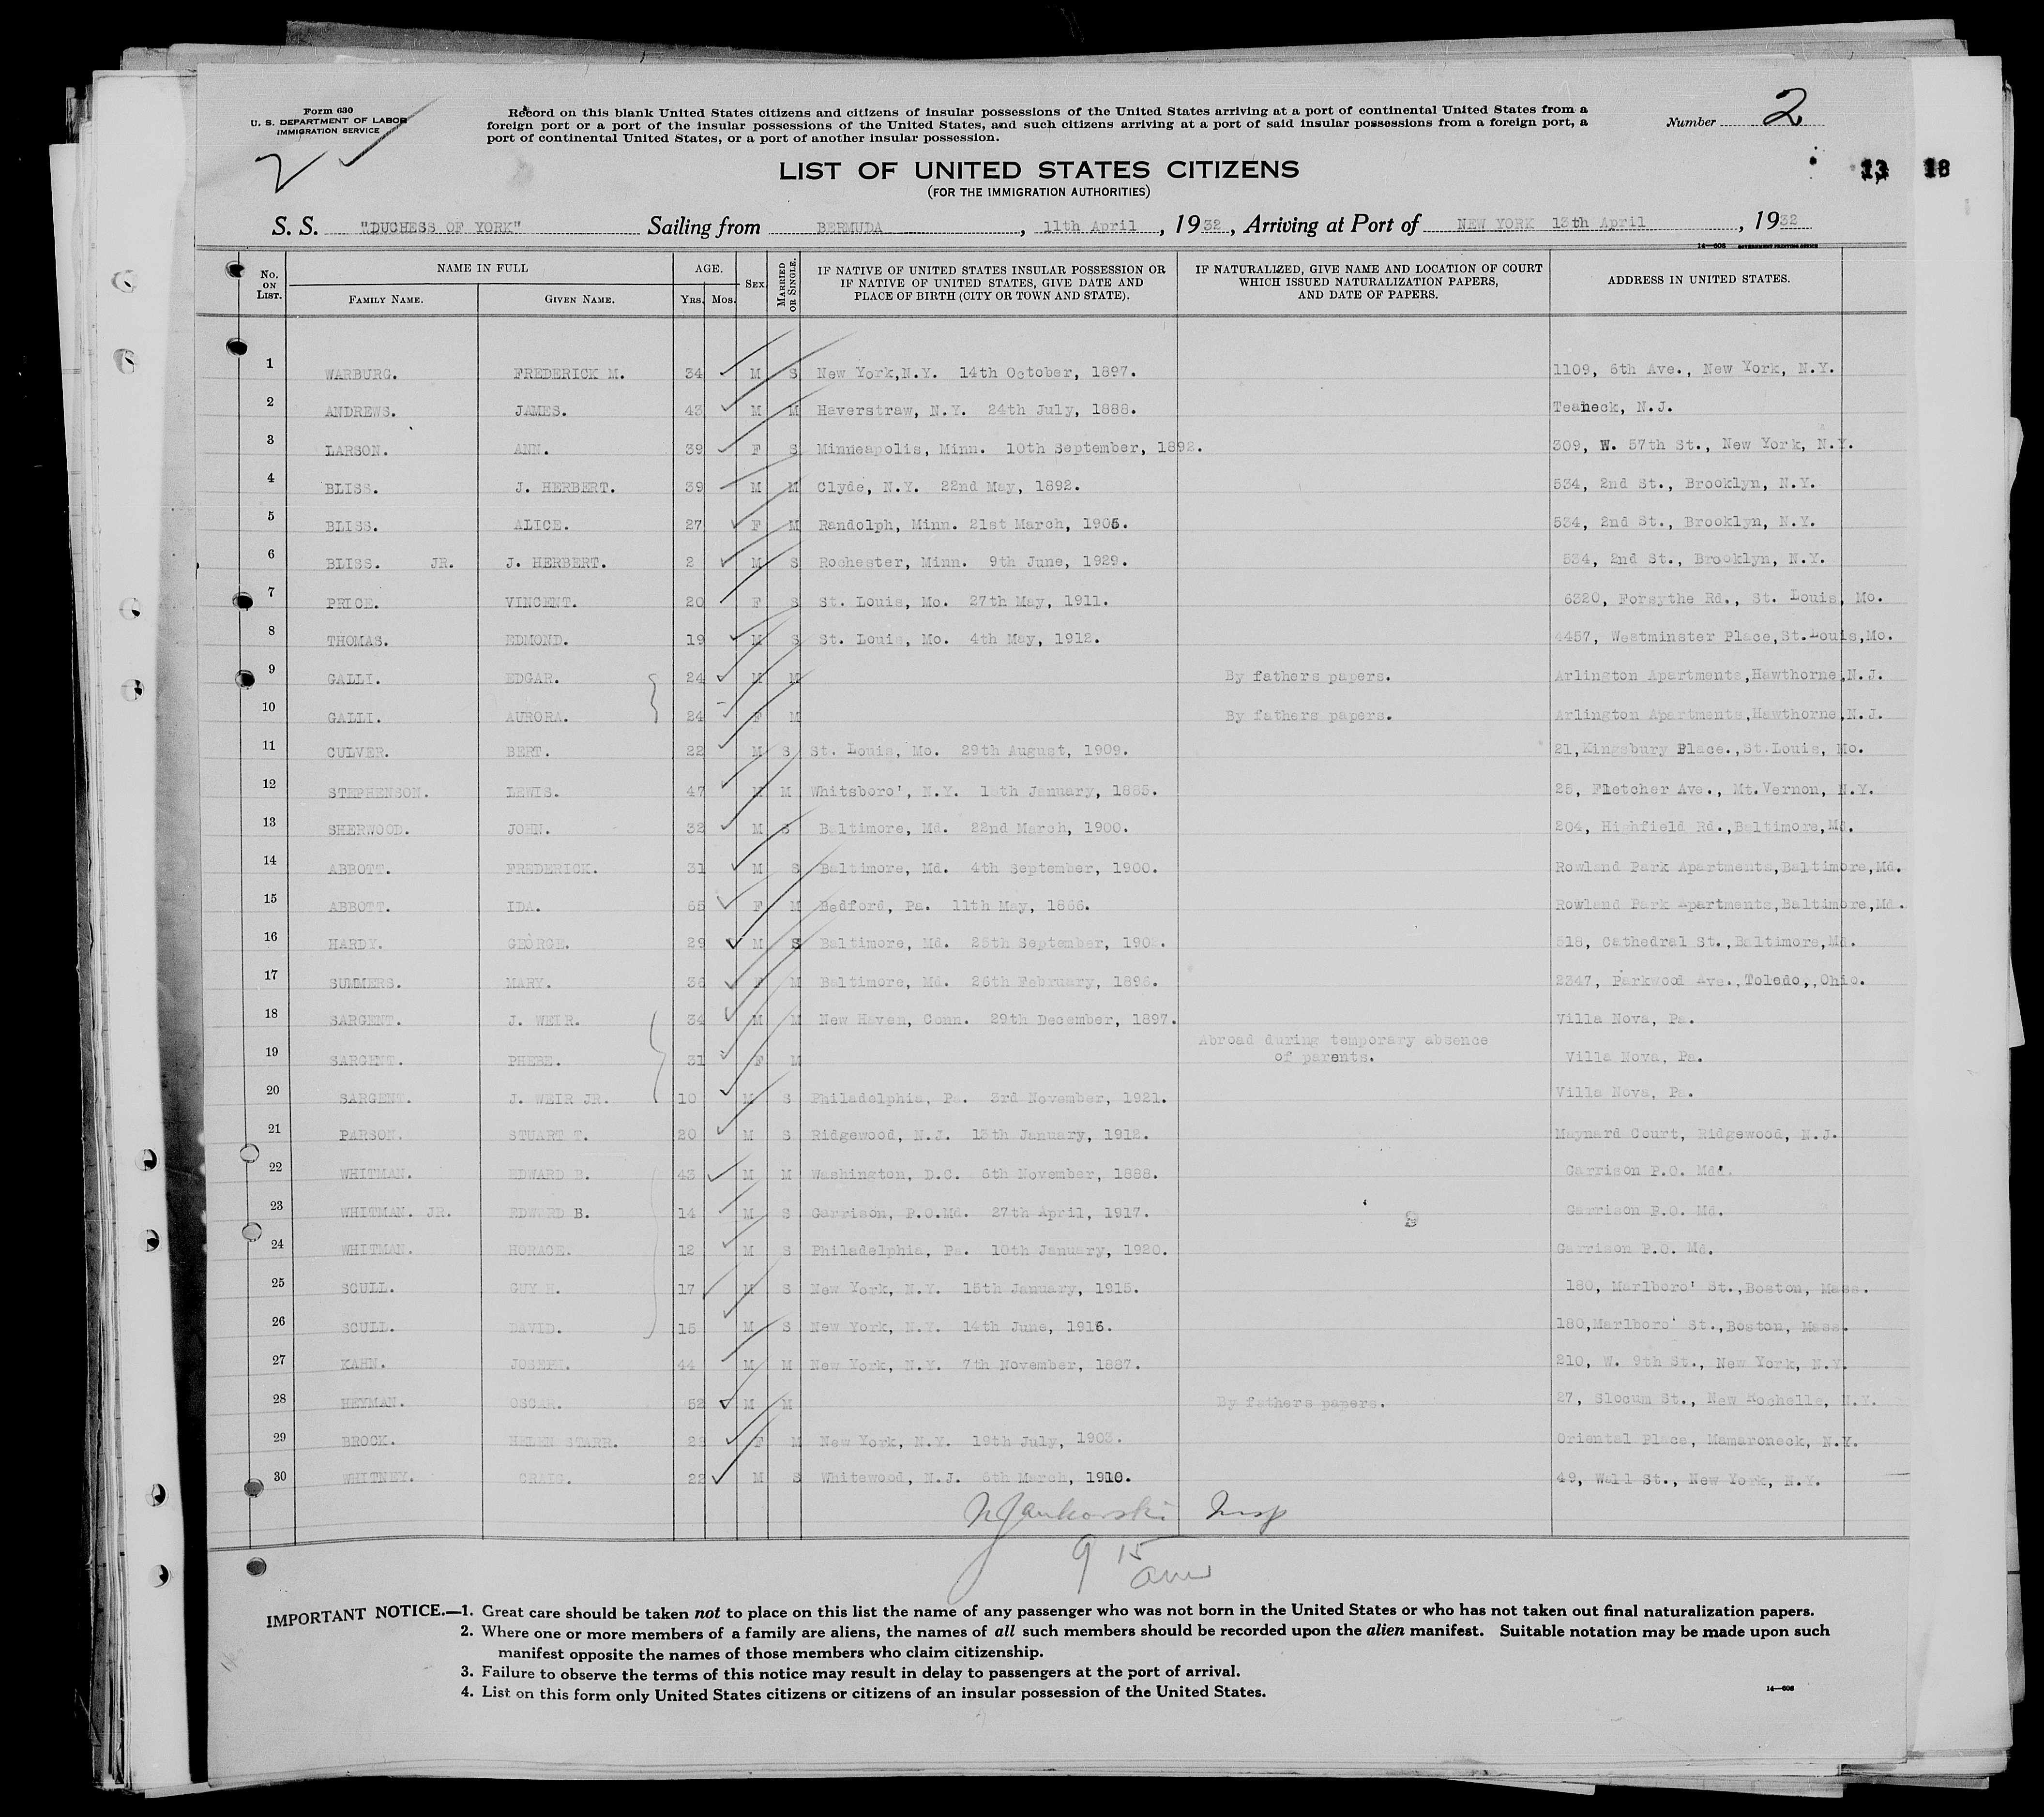 Form 630
U. S. DEPARTMENT OF LABOR
IMMIGRATION SERVICE
Record on this blank United States citizens and citizens of insular possessions of the United States arriving at a port of continental United States from a
foreign port or a port of the insular possessions of the United States, and such citizens arriving at a port of said insular possessions from a foreign port, a
port of continental United States, or a port of another insular possession.
Number 2
LIST OF UNITED STATES CITIZENS
(FOR THE IMMIGRATION AUTHORITIES)
13 18
S. S. "DUCHESS OF YORK" Sailing from BERMUDA , 11th April , 1932, Arriving at Port of NEW YORK 13th April , 1932
14—608 GOVERNMENT PRINTING OFFICE
No. ON LIST. NAME IN FULL FAMILY NAME. GIVEN NAME. AGE. Yrs. Mos. SEX. MARRIED OR SINGLE. IF NATIVE OF UNITED STATES INSULAR POSSESSION OR IF NATIVE OF UNITED STATES, GIVE DATE AND PLACE OF BIRTH (CITY OR TOWN AND STATE). IF NATURALIZED, GIVE NAME AND LOCATION OF COURT WHICH ISSUED NATURALIZATION PAPERS, AND DATE OF PAPERS. ADDRESS IN UNITED STATES.
1 WARBURG. FREDERICK M. 34 M S New York,N.Y. 14th October, 1897. 1109, 6th Ave., New York, N.Y.
2 ANDREWS. JAMES. 43 M M Haverstraw, N.Y. 24th July, 1888. Teaneck, N.J.
3 LARSON. ANN. 39 F S Minneapolis, Minn. 10th September, 1892. 309, W. 57th St., New York, N.Y.
4 BLISS. J. HERBERT. 39 M M Clyde, N.Y. 22nd May, 1892. 534, 2nd St., Brooklyn, N.Y.
5 BLISS. ALICE. 27 F M Randolph, Minn. 21st March, 1905. 534, 2nd St., Brooklyn, N.Y.
6 BLISS. JR. J. HERBERT. 2 M S Rochester, Minn. 9th June, 1929. 534, 2nd St., Brooklyn, N.Y.
7 PRICE. VINCENT. 20 F S St. Louis, Mo. 27th May, 1911. 6320, Forsythe Rd., St. Louis, Mo.
8 THOMAS. EDMOND. 19 M S St. Louis, Mo. 4th May, 1912. 4457, Westminster Place,St.Louis,Mo.
9 GALLI. EDGAR. 24 M M By fathers papers. Arlington Apartments,Hawthorne,N.J.
10 GALLI. AURORA. 24 F M By fathers papers. Arlington Apartments,Hawthorne,N.J.
11 CULVER. BERT. 22 M S St. Louis, Mo. 29th August, 1909. 21,Kingsbury Place.,St.Louis, Mo.
12 STEPHENSON. LEWIS. 47 M M Whitsboro', N.Y. January, 1885. 25, Fletcher Ave., Mt.Vernon, N.Y.
13 SHERWOOD. JOHN. 32 M S Baltimore, Md. 22nd March, 1900. 204, Highfield Rd.,Baltimore,Md.
14 ABBOTT. FREDERICK. 31 M S Baltimore, Md. 4th September, 1900. Rowland Park Apartments,Baltimore,Md.
15 ABBOTT. IDA. 65 F M Bedford, Pa. 11th May, 1866. Rowland Park Apartments,Baltimore,Md.
16 HARDY. GEORGE. 29 M S Baltimore, Md. 25th September, 1902. 518, Cathedral St.,Baltimore,Md.
17 SUMMERS. MARY. 36 F M Baltimore, Md. 26th February, 1896. 2347, Parkwood Ave.,Toledo,,Ohio.
18 SARGENT. J. WEIR. 34 M M New Haven, Conn. 29th December, 1897. Villa Nova, Pa.
19 SARGENT. PHEBE. 31 F M Abroad during temporary absence of parents. Villa Nova, Pa.
20 SARGENT. J. WEIR JR. 10 M S Philadelphia, Pa. 3rd November, 1921. Villa Nova, Pa.
21 PARSON. STUART T. 20 M S Ridgewood, N.J. 13th January, 1912. Maynard Court, Ridgewood, N.J.
22 WHITMAN. EDWARD B. 43 M M Washington, D.C. 6th November, 1888. Garrison P.O. Md.
23 WHITMAN. JR. EDWORD B. 14 M S Garrison, P.O.Md. 27th April, 1917. Garrison P.O. Md.
24 WHITMAN. HORACE. 12 M S Philadelphia, Pa. 10th January, 1920. Garrison P.O. Md.
25 SCULL. GUY H. 17 M S New York, N.Y. 15th January, 1915. 180, Marlboro' St.,Boston, Mass.
26 SCULL. DAVID. 15 M S New York, N.Y. 14th June, 1916. 180,Marlboro' St.,Boston, Mass.
27 KAHN. JOSEPH. 44 M M New York, N.Y. 7th November, 1887. 210, W. 9th St., New York, N.Y.
28 HEYMAN. OSCAR. 52 M M By fathers papers. 27, Slocum St., New Rochelle, N.Y.
29 BROCK. HELEN STARR. 28 F M New York, N.Y. 19th July, 1903. Oriental Place, Mamaroneck, N.Y.
30 WHITNEY. CRAIG. 22 M S Whitewood, N.J. 6th March, 1910. 49, Wall St., New York, N.Y.
Insp
9 15
am
IMPORTANT NOTICE.—1. Great care should be taken not to place on this list the name of any passenger who was not born in the United States or who has not taken out final naturalization papers.
2. Where one or more members of a family are aliens, the names of all such members should be recorded upon the alien manifest. Suitable notation may be made upon such
manifest opposite the names of those members who claim citizenship.
3. Failure to observe the terms of this notice may result in delay to passengers at the port of arrival.
4. List on this form only United States citizens or citizens of an insular possession of the United States.
14—608